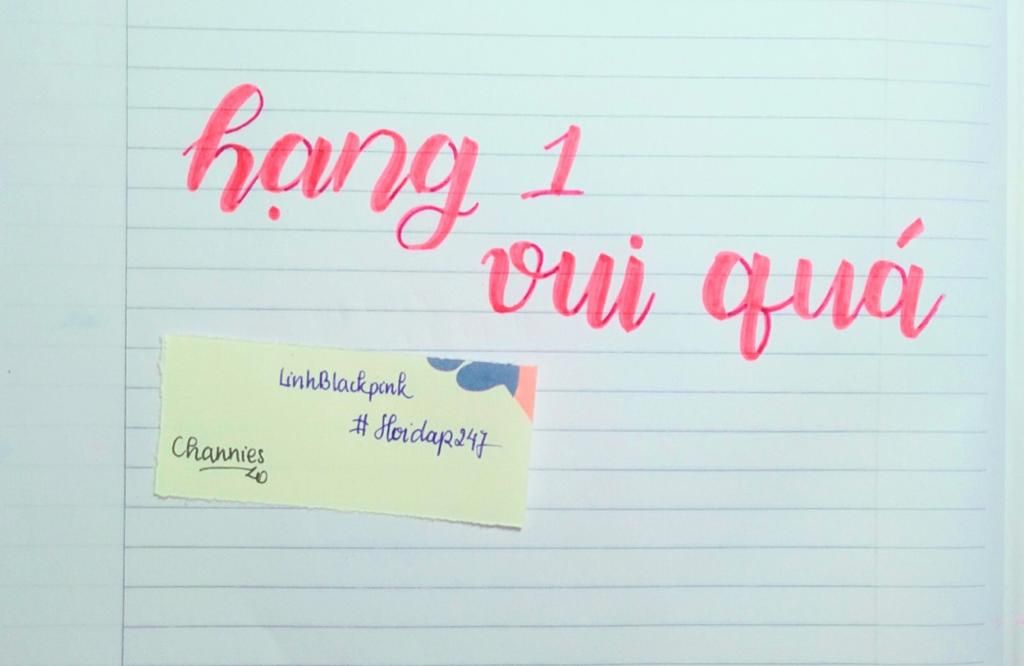 hạng 1
vui quá
LinhBlackpink
#Hoidap247
Channies